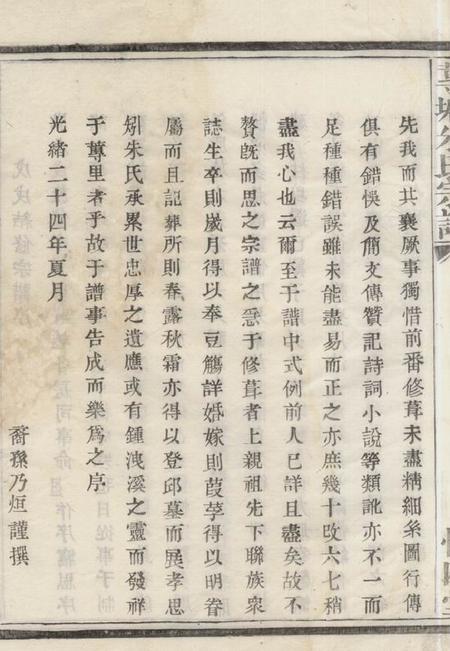 先我而共襄厥事獨惜前番修葺未盡精細糸圖行傳
俱有錯悞及簡文傳贊記詩詞小說等類訛亦不一而
足種種錯誤雖未能盡易而正之亦庶幾十改六七稍
盡我心也云爾至于譜中式例前人已詳且盡矣故不
贅旣而思之宗譜之亟于修葺者上親祖先下聯族衆
誌生卒則嵗月得以奉豆觴詳婚嫁則葭莩得以明眷
屬而且記葬所則春露秋霜亦得以登邱墓而展孝思
矧朱氏承累世忠厚之遺應或有鍾洩溪之靈而發祥
于蓴里者乎故于譜事告成而樂爲之序
光緒二十四年夏月
裔孫乃烜謹撰
朱氏宗譜